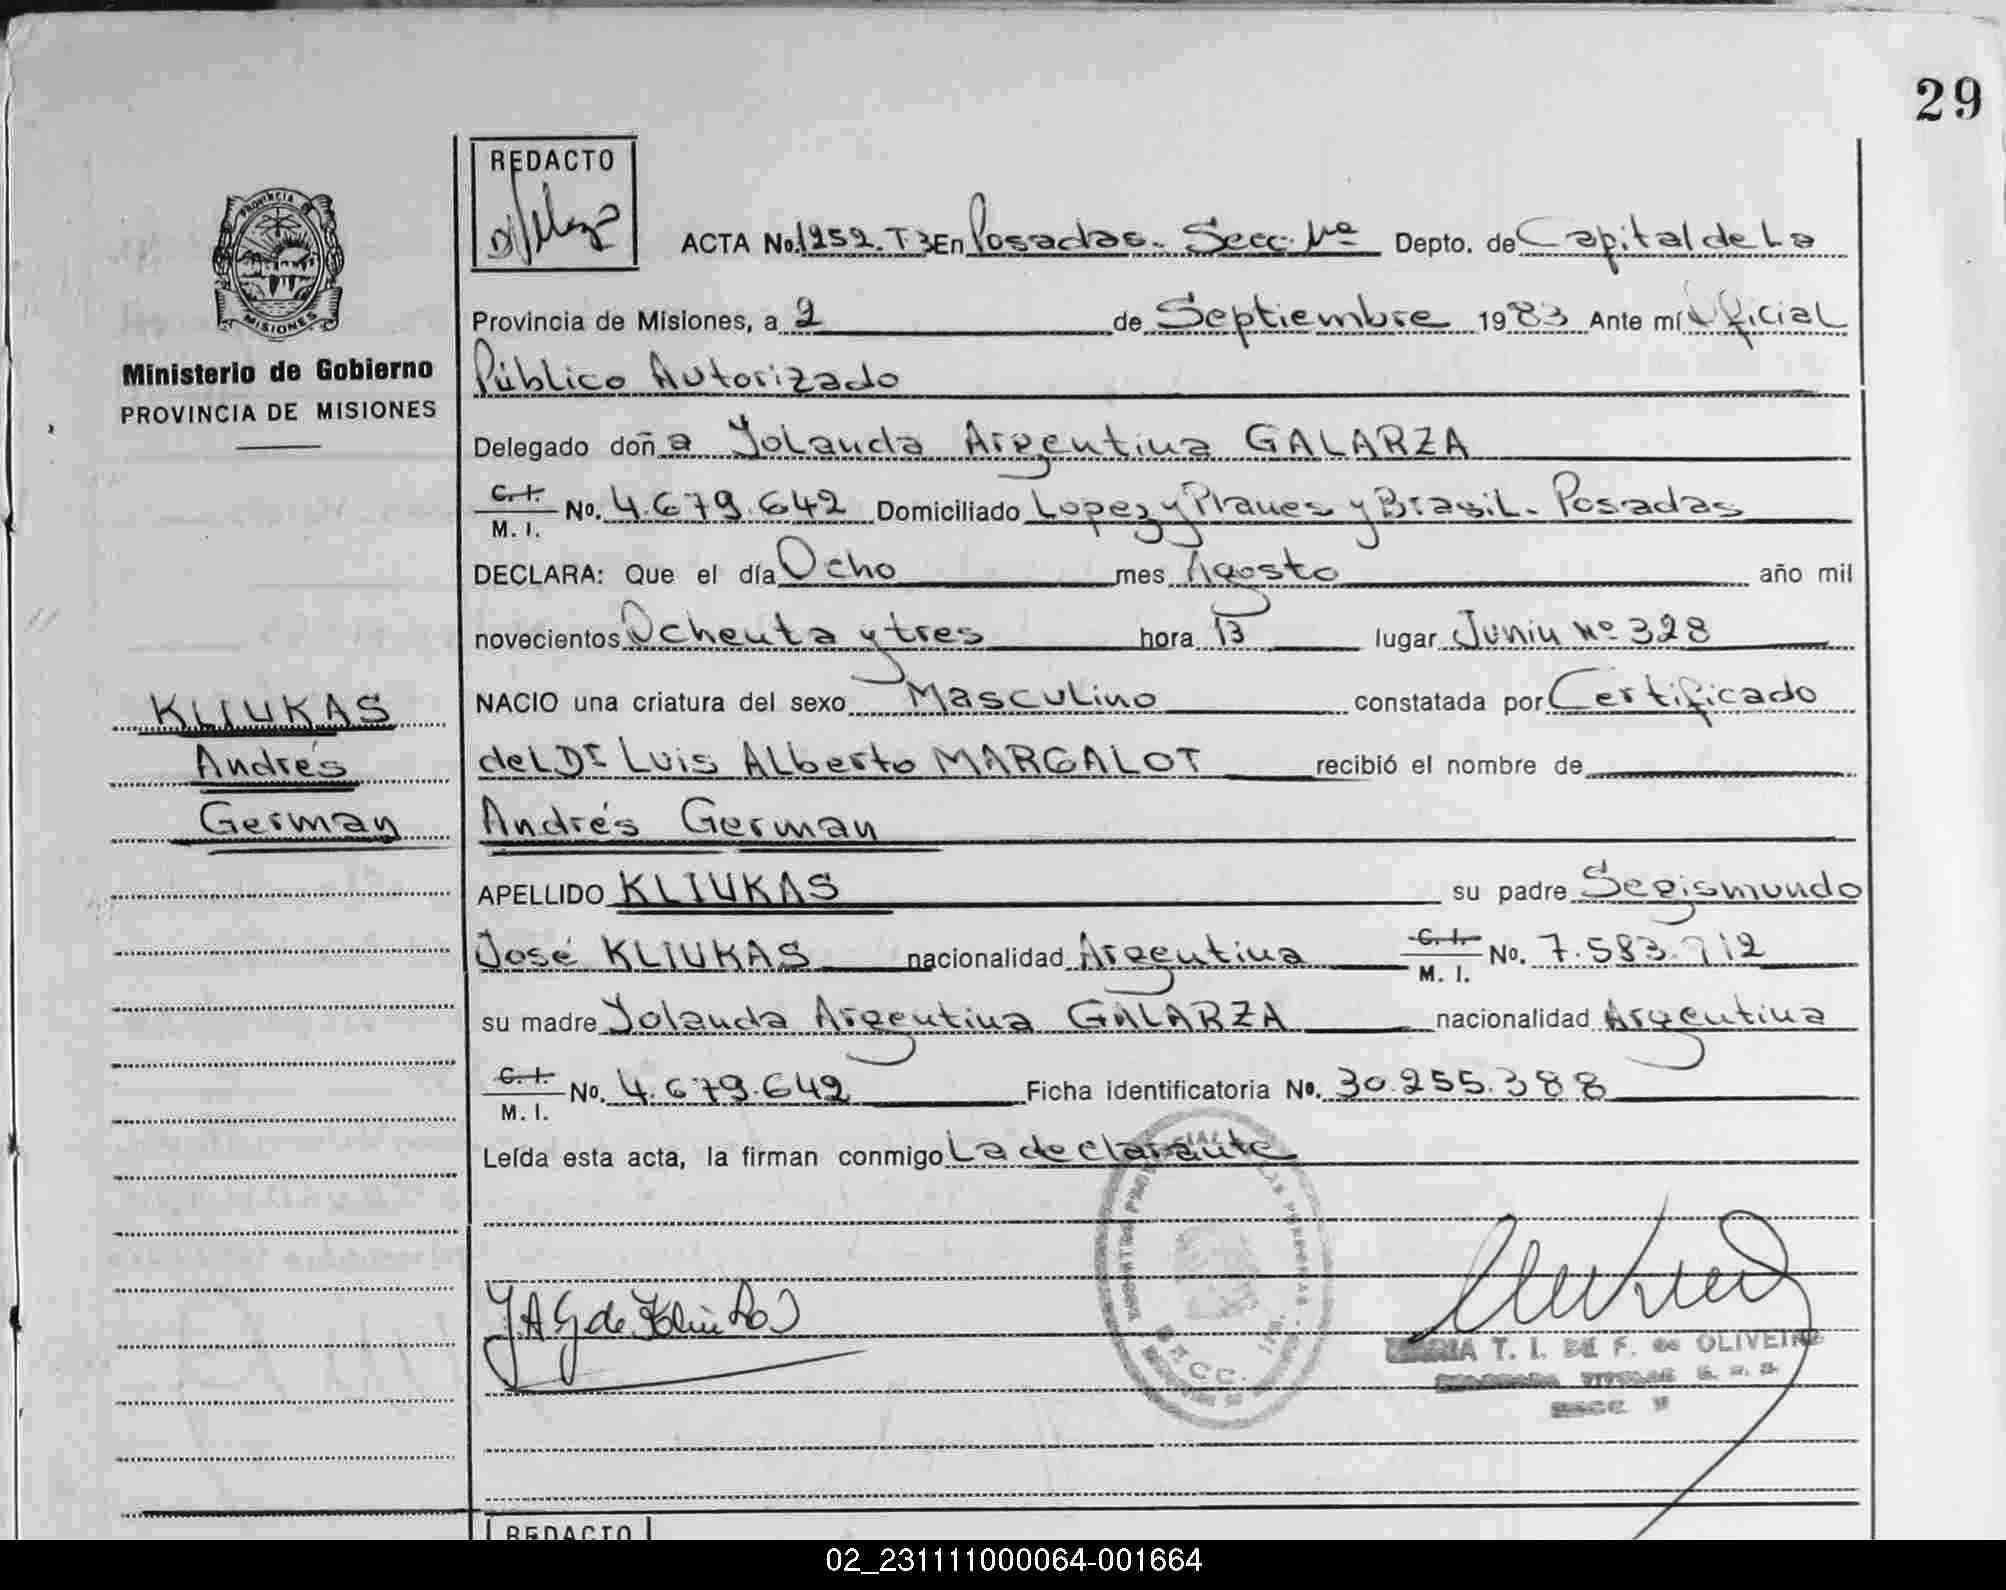 29
REDACTO
ACTA No. 1252. T3 En Posadas. Secc. 1ª Depto. de Capital de La
PROVINCIA
MISIONES
Provincia de Misiones, a 2 de Septiembre 1983 Ante mí Oficial
Ministerio de Gobierno
PROVINCIA DE MISIONES
Público Autorizado
Delegado doña Yolanda Argentina GALARZA
C. I. M. I. No. 4.679.642 Domiciliado Lopez y Planes y Brasil. Posadas
DECLARA: Que el día Ocho mes Agosto año mil
novecientos Ochenta y tres hora 13 lugar Junin Nº 328
KLIUKAS
Andrés
German
NACIO una criatura del sexo Masculino constatada por Certificado
del Dr Luis Alberto MARGALOT recibió el nombre de
Andrés German
APELLIDO KLIUKAS su padre Segismundo
José KLIUKAS nacionalidad Argentina C. I. M. I. No. 7.583.712
su madre Yolanda Argentina GALARZA nacionalidad Argentina
C. I. M. I. No. 4.679.642 Ficha identificatoria No. 30.255.388
Leída esta acta, la firman conmigo La declarante
J.A G de Kliukas
MARIA T. I. DE F. de OLIVEIRA
SECC
REDACTO
02_231111000064-001664